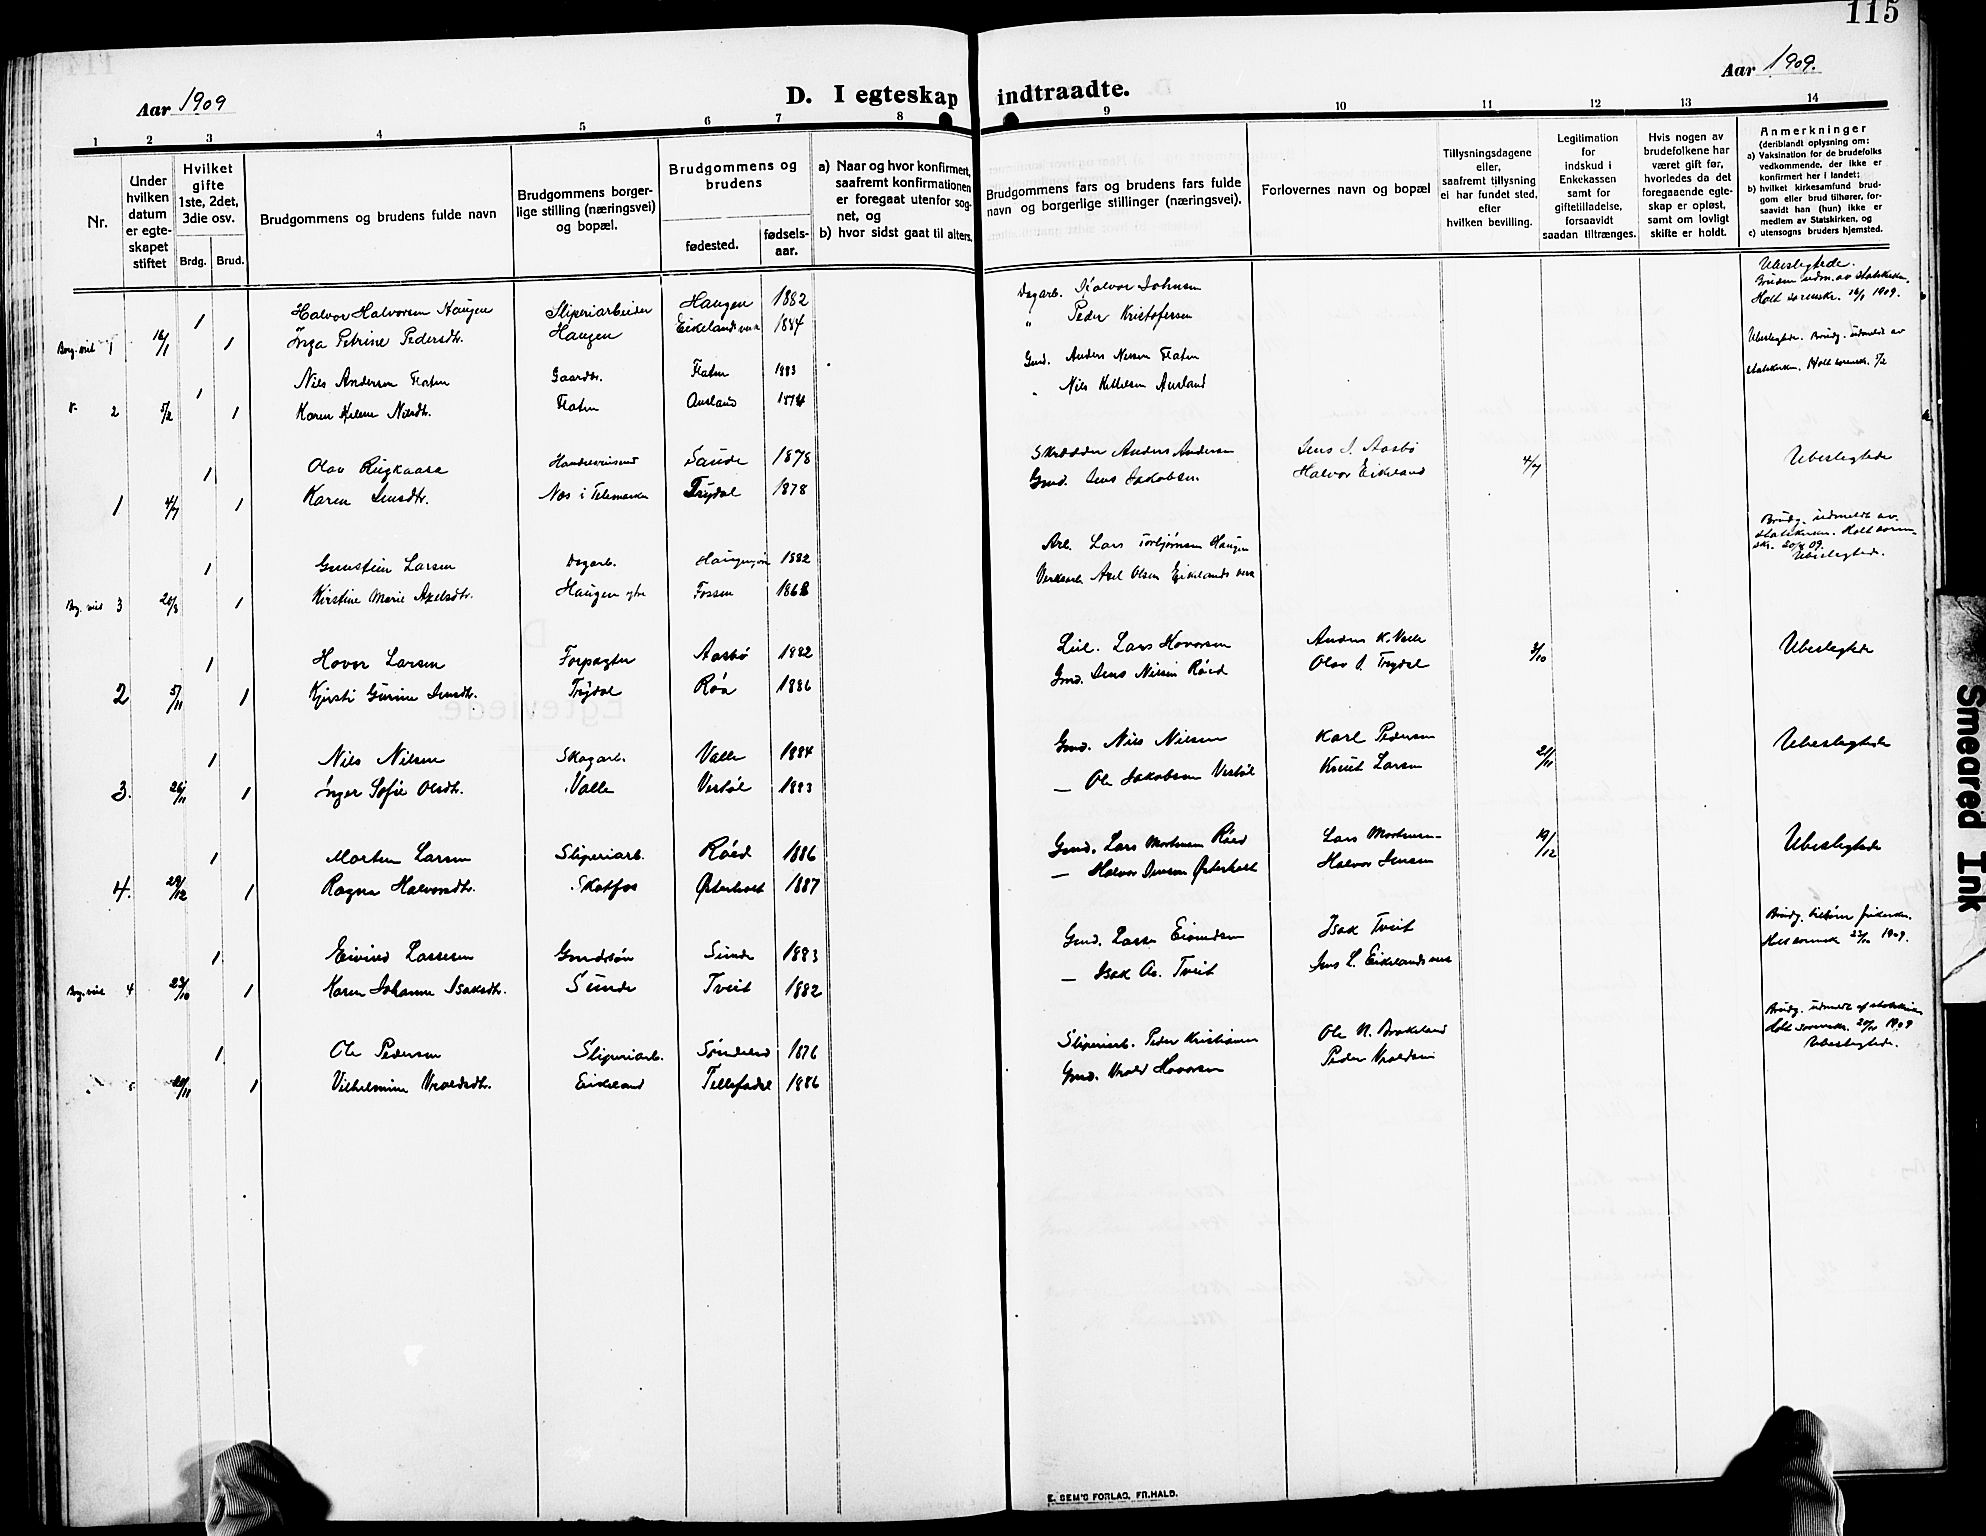 115
Aar 1909
D. I egteskap indtraadte.
Aar 1909.
1 2 3 4 5 6 7 8 9 10 11 12 13 14
Nr.
Under hvilken datum er egteskapet stiftet
Hvilket gifte 1ste, 2det, 3die osv.
Brdg. Brud.
Brudgommens og brudens fulde navn
Brudgommens borgerlige stilling (næringsvei) og bopæl.
Brudgommens og brudens
fødested.
fødselsaar.
a) Naar og hvor konfirmert, saafremt konfirmationen er foregaat utenfor sognet, og
b) hvor sidst gaat til alters.
Brudgommens fars og brudens fars fulde navn og borgerlige stillinger (næringsvei).
Forlovernes navn og bopæl
Tillysningsdagene eller, saafremt tillysning ei har fundet sted, efter hvilken bevilling.
Legitimation for indskud i Enkekassen samt for giftetilladelse, forsaavidt saadan tiltrænges.
Hvis nogen av brudefolkene har været gift før, hvorledes da det foregaaende egteskap er opløst, samt om lovligt skifte er holdt.
Anmerkninger
(deriblandt oplysning om:
a) Vaksination for de brudefolks vedkommende, der ikke er konfirmert her i landet:
b) hvilket kirkesamfund brudgom eller brud tilhører, forsaavidt han (hun) ikke er medlem av Statskirken, og
c) utensogns bruders hjemsted.
1 Halvor Halvorsen Haugen Sliperiarbeider Haugen 1882 Dagarb. Halvor Johnsen Ubeslegtede.
Bruden udm. av statskirken.
Borg. viet 1 16/1 1 Inga Petrine Pedersdtr. Haugen Eikelands verk 1884 " Peder Kristofersen Holt sorenskr. 16/1 1909.
1 Nils Andersen Flaten Gaardbr. Flaten 1883 Gmd. Anders Nilsen Flaten Ubeslegtede. Brudg. udmeldt av
2 5/2 1 Karen Helene Nilsdtr. Flaten Ausland 1874 " Nils Kittelsen Ausland statskirken. Holt sorenskr. 5/2
1 Olav Rugkaasa Saude 1878 Skrædder Anders Andersen Jens J. Aasbø 4/7 Ubeslegtede
1 4/7 1 Karen Jensdtr. Nes i Telemarken Trydal 1878 Gmd. Jens Jakobsen Halvor Eikeland
1 Gunstein Larsen Dagarb. 1882 Arb. Lars Torbjørnsen Haugen Brudg. udmeldt av statskirken. Holt sorenskr. 20/8 09. Ubeslegtede.
Bg. viet 3 20/8 1 Kirstine Marie Axelsdtr. Haugen Fossen 1868 Verksarb. Axel Olsen Eikelands verk
1 Hovor Larsen Forpagter Aasbø 1882 Leil. Lars Hovorsen Anders K. Valle 3/10 Ubeslegtede
2 5/11 1 Kjersti Gurine Jensdtr. Trydal Røa 1886 Gmd. Jens Nilsen Røed Olav J. Trydal
1 Nils Nilsen Skogarb. Valle 1884 Gmd. Nils Nilsen Karl Pedersen 21/11 Ubeslegtede
3. 26/11 1 Inger Sofie Olsdtr. Valle Vestøl 1883 — Ole Jakobsen Vestøl Knut Larsen
1 Morten Larsen Sliperiarb. Røed 1886 Gmd. Lars Mortensen Røed Lars Mortensen 19/12 Ubeslegtede
4. 29/12 1 Ragna Halvorsdtr. Skotfos Østerholt 1887 — Halvor Jensen Østerholt Halvor Jensen
1 Eivind Lassesen Gmdssøn Sunde 1883 Gmd. Lasse Eivindsen Isak Tveit Brudg. tilhører frikirken.
Bg. viet 4 23/10 1 Karen Johanne Isaksdtr. Sunde Tveit 1882 — Isak As. Tveit Jens L. Eikelands verk Nes sorenskr. 23/10 1909.
1 Ole Pedersen Sliperiarb. Søndeled 1876 Sliperiarb. Peder Kristiansen Ole N. Brokeland Brudg. udmeldt af statskirken
Holt sorenskr. 20/11 1909
20/11 1 Vilhelmine Vraldsdtr. Eikeland Tellefsdal 1886 Gmd. Vrald Hovorsen Peder Vraldsen Ubeslegtede.
E. SEM'S FORLAG, FR.HALD.
Smeared Ink